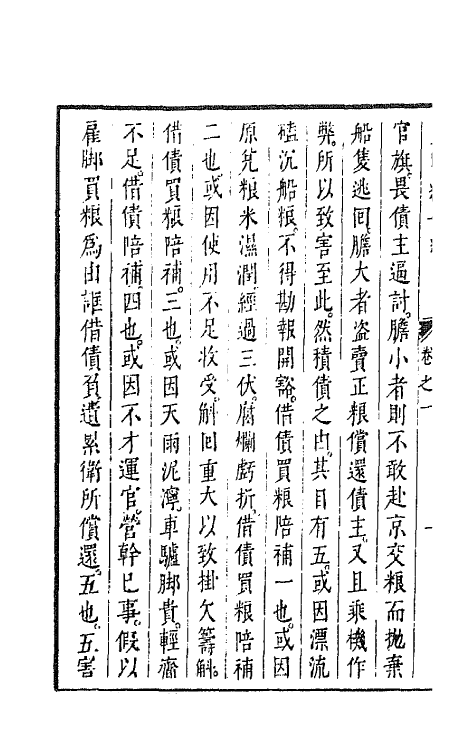 卷之一
官旗。畏債主逼討。膽小者則不敢赴京交粮而抛棄
船隻逃囬。膽大者盗賣正粮償還債主。又且乘機作
弊。所以致害至此。然積債之由。其目有五。或因漂流
磕沉船粮。不得勘報開豁。借債買粮陪補一也。或因
原兊粮米濕潤經過三伏。腐爛虧折。借債買粮陪補
二也。或因使用不足收受。斛囬重大以致掛欠籌斛。
借債買粮陪補。三也。或因天雨泥濘。車驢脚貴。輕齎
不足。借債陪補。四也。或因不才運官。營幹已事。假以
雇脚買粮爲由誆借債負。遺累衛所償還。五也。五害